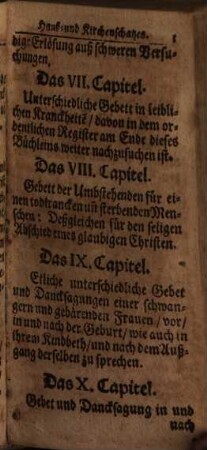 Hauß- und Kirchenschatzes. 1
dige Erlösung auß schweren Versu-
chungen,
Das VII. Capitel.
Unterschiedliche Gebett in leibli-
chen Kranckheitē / davon in dem or-
dentlichen Register am Ende dieses
Büchleins weiter nachzusuchen ist.
Das VIII. Capitel.
Gebett der Umbstehenden für ei-
nen todtrancken uñ sterbenden Men-
schen: Deßgleichen für den seligen
Abschied eines glaubigen Christen.
Das IX. Capitel.
Etliche unterschiedliche Gebet
und Dancksagungen einer schwan-
gern und gebärenden Frauen / vor /
in und nach der Geburt / wie auch in
ihrem Kindbeth / und nach dem Auß-
gang derselben zu sprechen.
Das X. Capitel.
Gebet und Dancksagung in und
nach